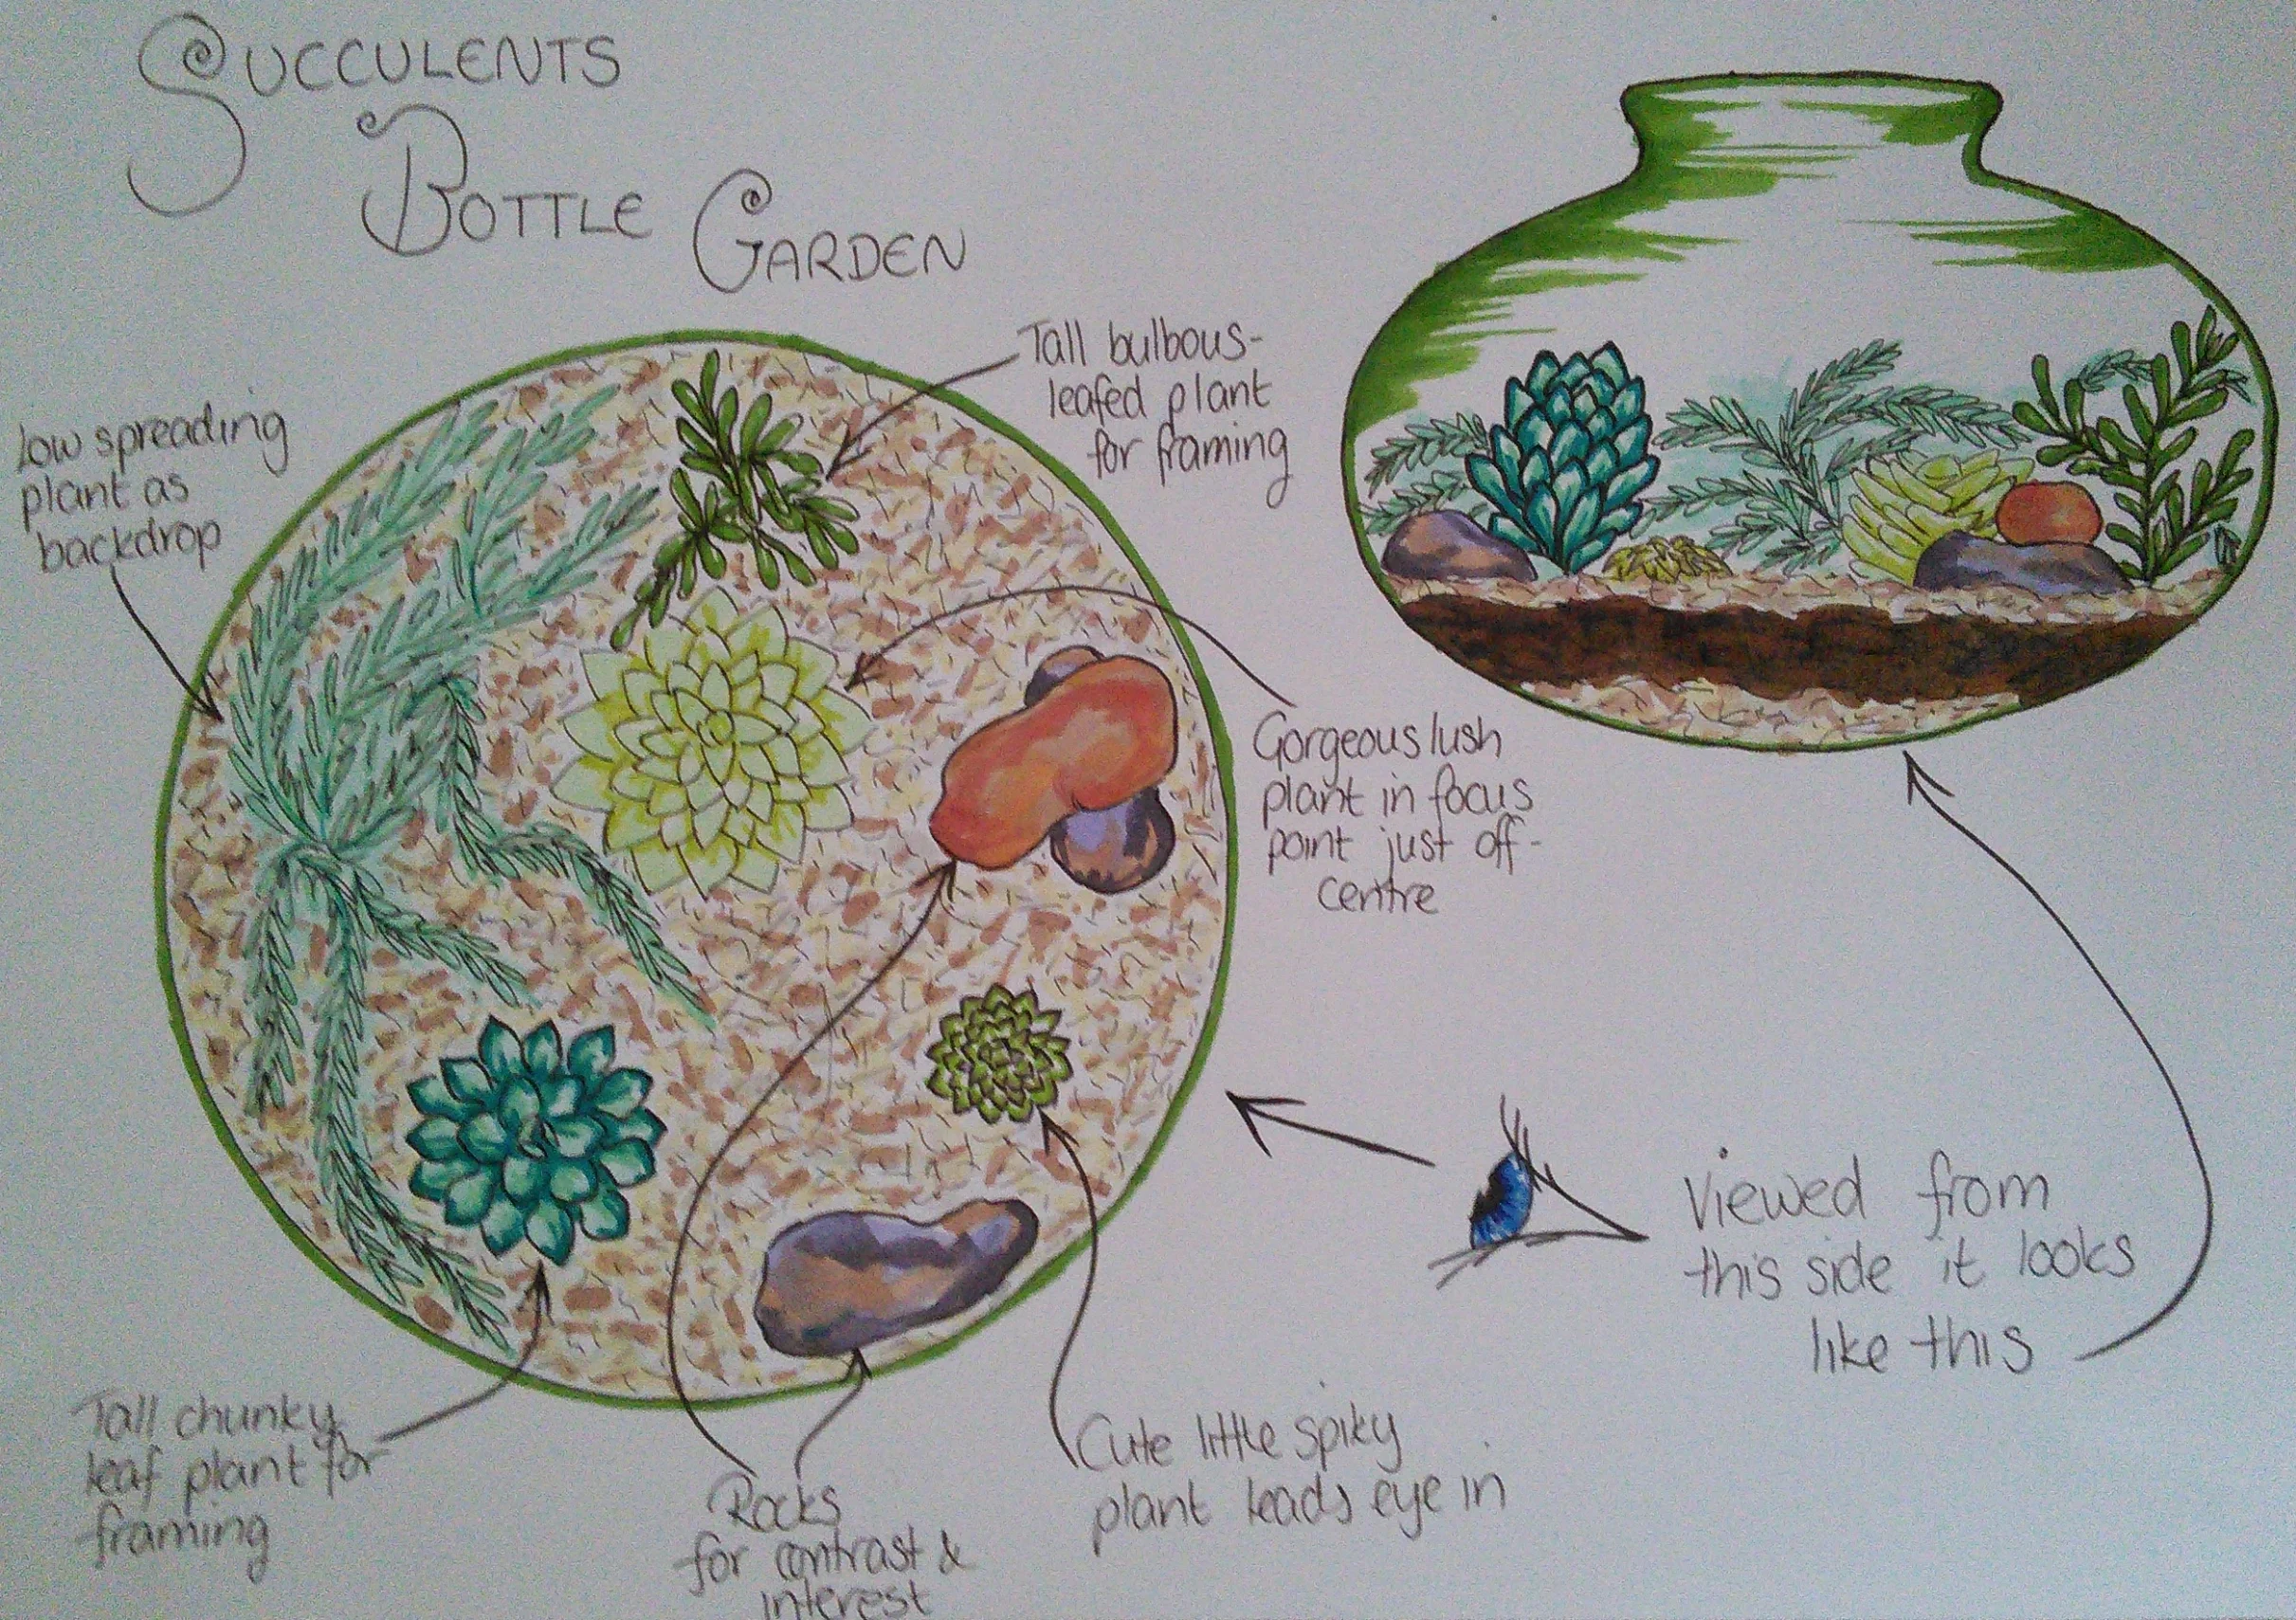 SUCCULENTS
BOTTLE GARDEN
Tall bulbous-
leafed plant
for framing
Low spreading
plant as
backdrop
Gorgeous lush
plant in focus
point just off-
centre
Viewed from
this side it looks
like this
Tall chunky
leaf plant for
framing
Rocks
for contrast &
interest
Cute little spiky
plant leads eye in